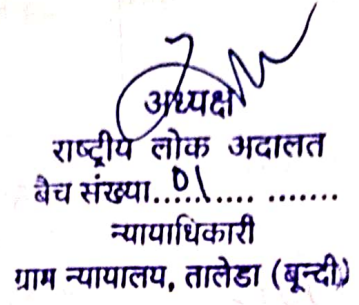 अध्यक्ष
राष्ट्रीय लोक अदालत
बैच संख्या....01.... .......
न्यायाधिकारी
ग्राम न्यायालय, तालेडा (बून्दी)